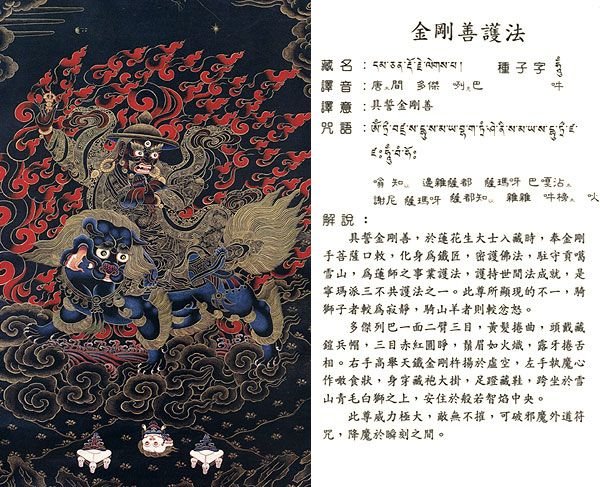 金剛善護法
藏名：དམ་ཅན་རྡོ་རྗེ་ལེགས་པ། 種子字 ཧཱུྃ
譯音：唐間 多傑 咧巴 吽
譯意：具誓金剛善
咒語：
嗡 知 邊雜薩都 薩瑪呀 巴嘎沾
謝尼 薩瑪呀 薩都知 雜雜 吽榜
解說：
具誓金剛善，於蓮花生大士入藏時，奉金剛
手菩薩口敕，化身為鐵匠，密護佛法，駐守貢噶
雪山，為蓮師之事業護法，護持世間法成就，是
寧瑪派三不共護法之一。此尊所顯現的不一，騎
獅子者較為寂靜，騎山羊者則較忿怒。
多傑列巴一面二臂三目，黃髮捲曲，頭戴藏
鎧兵帽，三目赤紅圓睜，鬚眉如火熾，露牙捲舌
相。右手高舉天鐵金剛杵揚於虛空，左手執魔心
作噉食狀，身穿藏袍大掛，足蹬藏鞋，跨坐於雪
山青毛白獅之上，安住於般若智焰中央。
此尊威力極大，敵無不摧，可破邪魔外道符
咒，降魔於瞬刻之間。